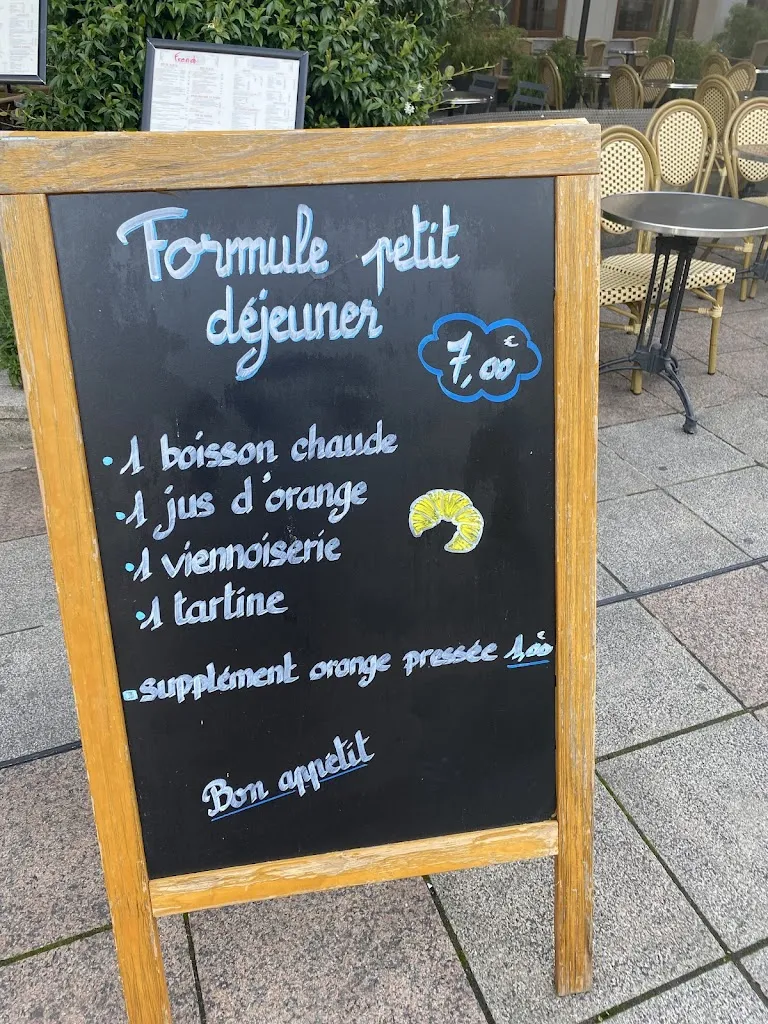 Formule petit
déjeuner
7,00€
1 boisson chaude
1 jus d'orange
1 viennoiserie
1 tartine
supplément orange pressée 1,00
Bon appetit